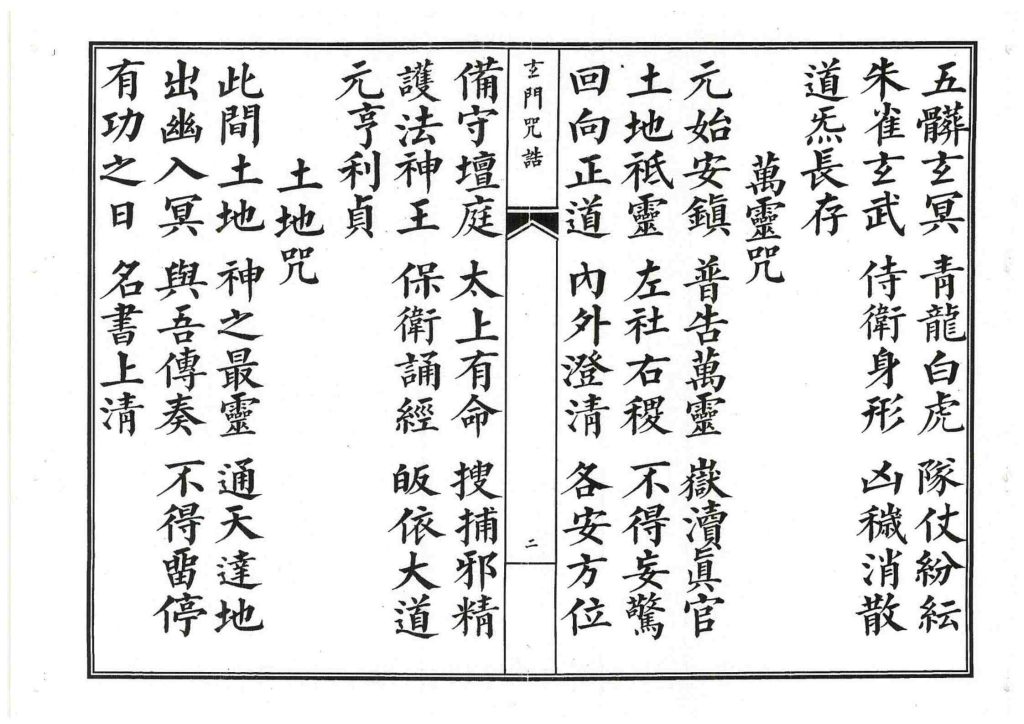 五臟玄冥 青龍白虎 隊仗紛紜
朱雀玄武 侍衛身形 凶穢消散
道炁長存
萬靈咒
元始安鎮 普告萬靈 嶽瀆眞官
土地祇靈 左社右稷 不得妄驚
回向正道 內外澄清 各安方位
玄門咒誥
二
備守壇庭 太上有命 搜捕邪精
護法神王 保衛誦經 皈依大道
元亨利貞
土地咒
此間土地 神之最靈 通天達地
出幽入冥 與吾傳奏 不得畱停
有功之日 名書上清